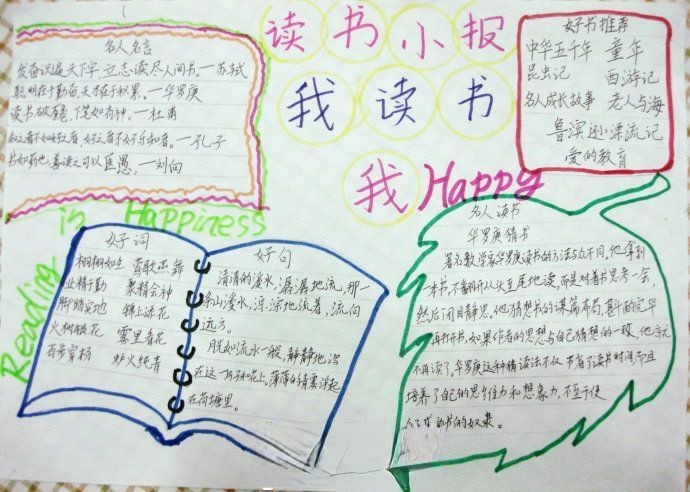 读书小报
我读书
我Happy
名人名言
发奋识遍天下字,立志读尽人间书。—苏轼
聪明在于勤奋,天才在于积累。—华罗庚
读书破万卷,下笔如有神。—杜甫
知之者不如好之者,好之者不如乐知者。—孔子
书如药也,善读之可以医愚。—刘向
好书推荐
中华五千年 童年
昆虫记 西游记
名人成长故事 老人与海
鲁滨逊漂流记
爱的教育
Reading is Happiness
好词
栩栩如生 莺歌燕舞
业精于勤 聚精会神
脚踏实地 锦上添花
火树银花 雾里看花
百步穿杨 炉火纯青
好句
清清的溪水,潺潺地流,那一
条山溪水,淙淙地流着,流向
远方。
月光如流水一般,静静地泻
在这一片叶子和花上。薄薄的青雾浮起
在荷塘里。
名人读书
华罗庚猜书
著名数学家华罗庚读书的方法与众不同,他拿到
一本书,不翻开从头至尾地读,而是对着书思考一会,
然后闭目静思,他猜想书的谋篇布局,斟酌完毕
再打开书,如果作者的思想与自己猜想的一致,他就
不再读了。华罗庚这种猜读法不仅节省了读书时间,而且
培养了自己的思维力和想象力,不至于使
自己成为书的奴隶。